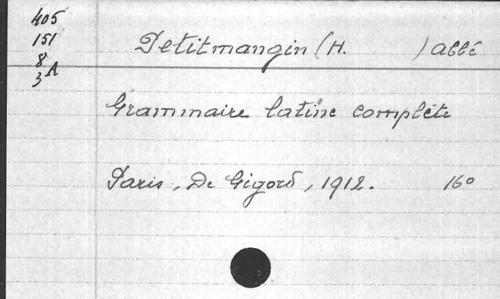 405
151
8
3 A
Petitmangin (H. ) abbé
Grammaire latine complète
Paris, De Gigord, 1912. 16º